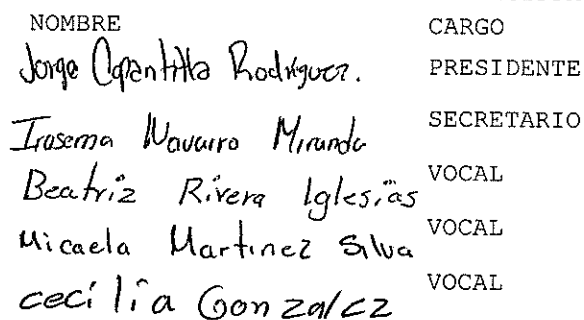 NOMBRE CARGO
Jorge Copantitla Rodriguez. PRESIDENTE
Irasema Navarro Miranda SECRETARIO
Beatriz Rivera Iglesias VOCAL
Micaela Martinez Silva VOCAL
cecilia Gonzalez VOCAL